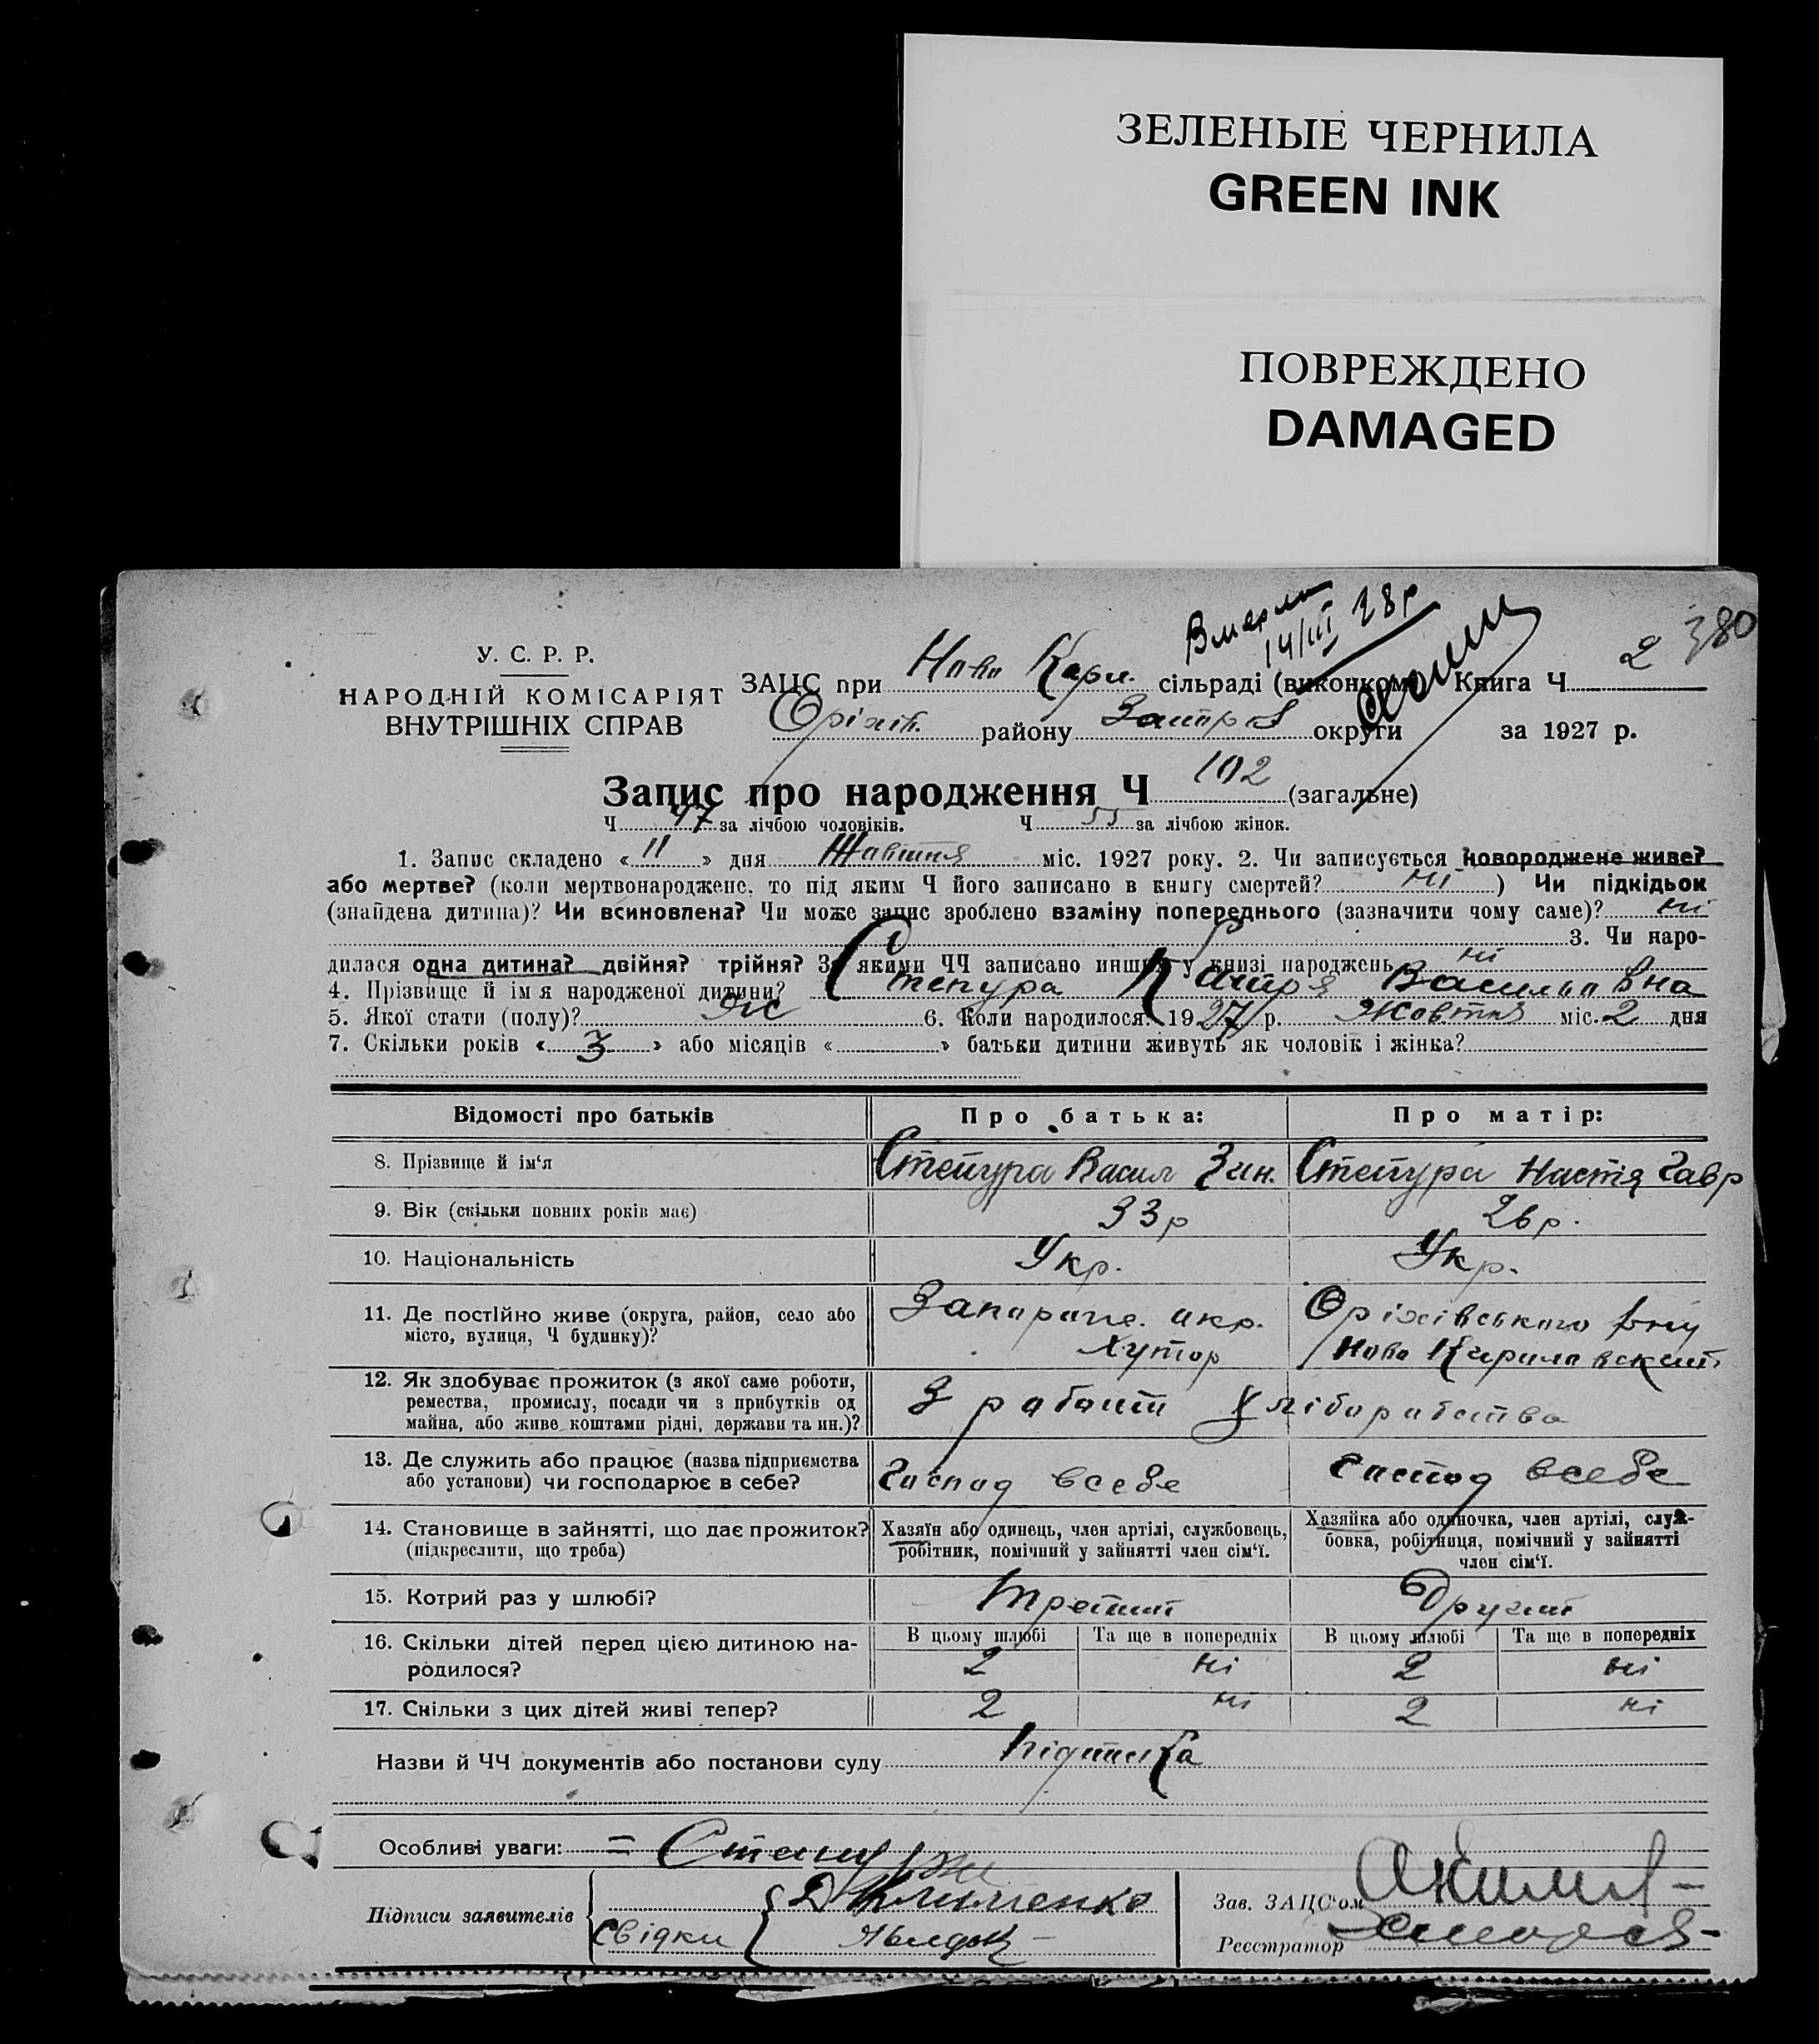 ЗЕЛЕНЫЕ ЧЕРНИЛА
GREEN INK
ПОВРЕЖДЕНО
DAMAGED
Вмерла
14/III 28р
380
У. С. Р. Р.
НАРОДНІЙ КОМІСАРІЯТ
ВНУТРІШНІХ СПРАВ
ЗАЦС при Ново Кари. сільраді (виконкомі) Книга Ч. 2
Оріхів. району Запорз округи за 1927 р.
Запис про народження Ч 102 (загальне)
Ч 47 за лічбою чоловіків. Ч 55 за лічбою жінок.
1. Запис складено « 11 » дня Жовтня міс. 1927 року. 2. Чи записується новороджене живе?
або мертве? (коли мертвонароджене, то під яким Ч його записано в книгу смертей? ні ) Чи підкідьок
(знайдена дитина)? Чи всиновлена? Чи може запис зроблено взаміну попереднього (зазначити чому саме)? ні
3. Чи наро-
дилася одна дитина? двійня? трійня? За якими ЧЧ записано инших у книзі народжень ні
4. Прізвище й ім'я народженої дитини? Степура Катря Васильовна
5. Якої стати (полу)? жс 6. Коли народилося? 1927 р. Жовтня міс. 2 дня
7. Скільки років « 3 » або місяців « » батьки дитини живуть як чоловік і жінка?
Відомості про батьків Про батька: Про матір:
8. Прізвище й ім'я Степура Васил Зин. Степура Настя Гавр
9. Вік (скільки повних років має) 33р 26р.
10. Національність Укр. Укр.
11. Де постійно живе (округа, район, село або Запоріже. окр. Оріхівського
місто, вулиця, Ч будинку)? Хутор Ново Кирилавский
12. Як здобуває прожиток (з якої саме роботи,
ремества, промислу, посади чи з прибутків од З работи хліборабства
майна, або живе коштами рідні, держави та ин.)?
13. Де служить або працює (назва підприємства
або установи) чи господарює в себе? Господ всебе Господ всебе
14. Становище в зайнятті, що дає прожиток? Хазяїн або одинець, член артілі, службовець, Хазяйка або одиночка, член артілі, служ-
(підкреслити, що треба) робітник, помічний у зайнятті член сім'ї. бовка, робітниця, помічний у зайнятті
член сім'ї.
15. Котрий раз у шлюбі? третий Другий
16. Скільки дітей перед цією дитиною на- В цьому шлюбі Та ще в попередніх В цьому шлюбі Та ще в попередніх
родилося? 2 ні 2 ні
17. Скільки з цих дітей живі тепер? 2 ні 2 ні
Назви й ЧЧ документів або постанови суду підписка
Особливі уваги: =
Підписи заявителів Клименко
Свідки
Зав. ЗАЦС'ом
Реєстратор